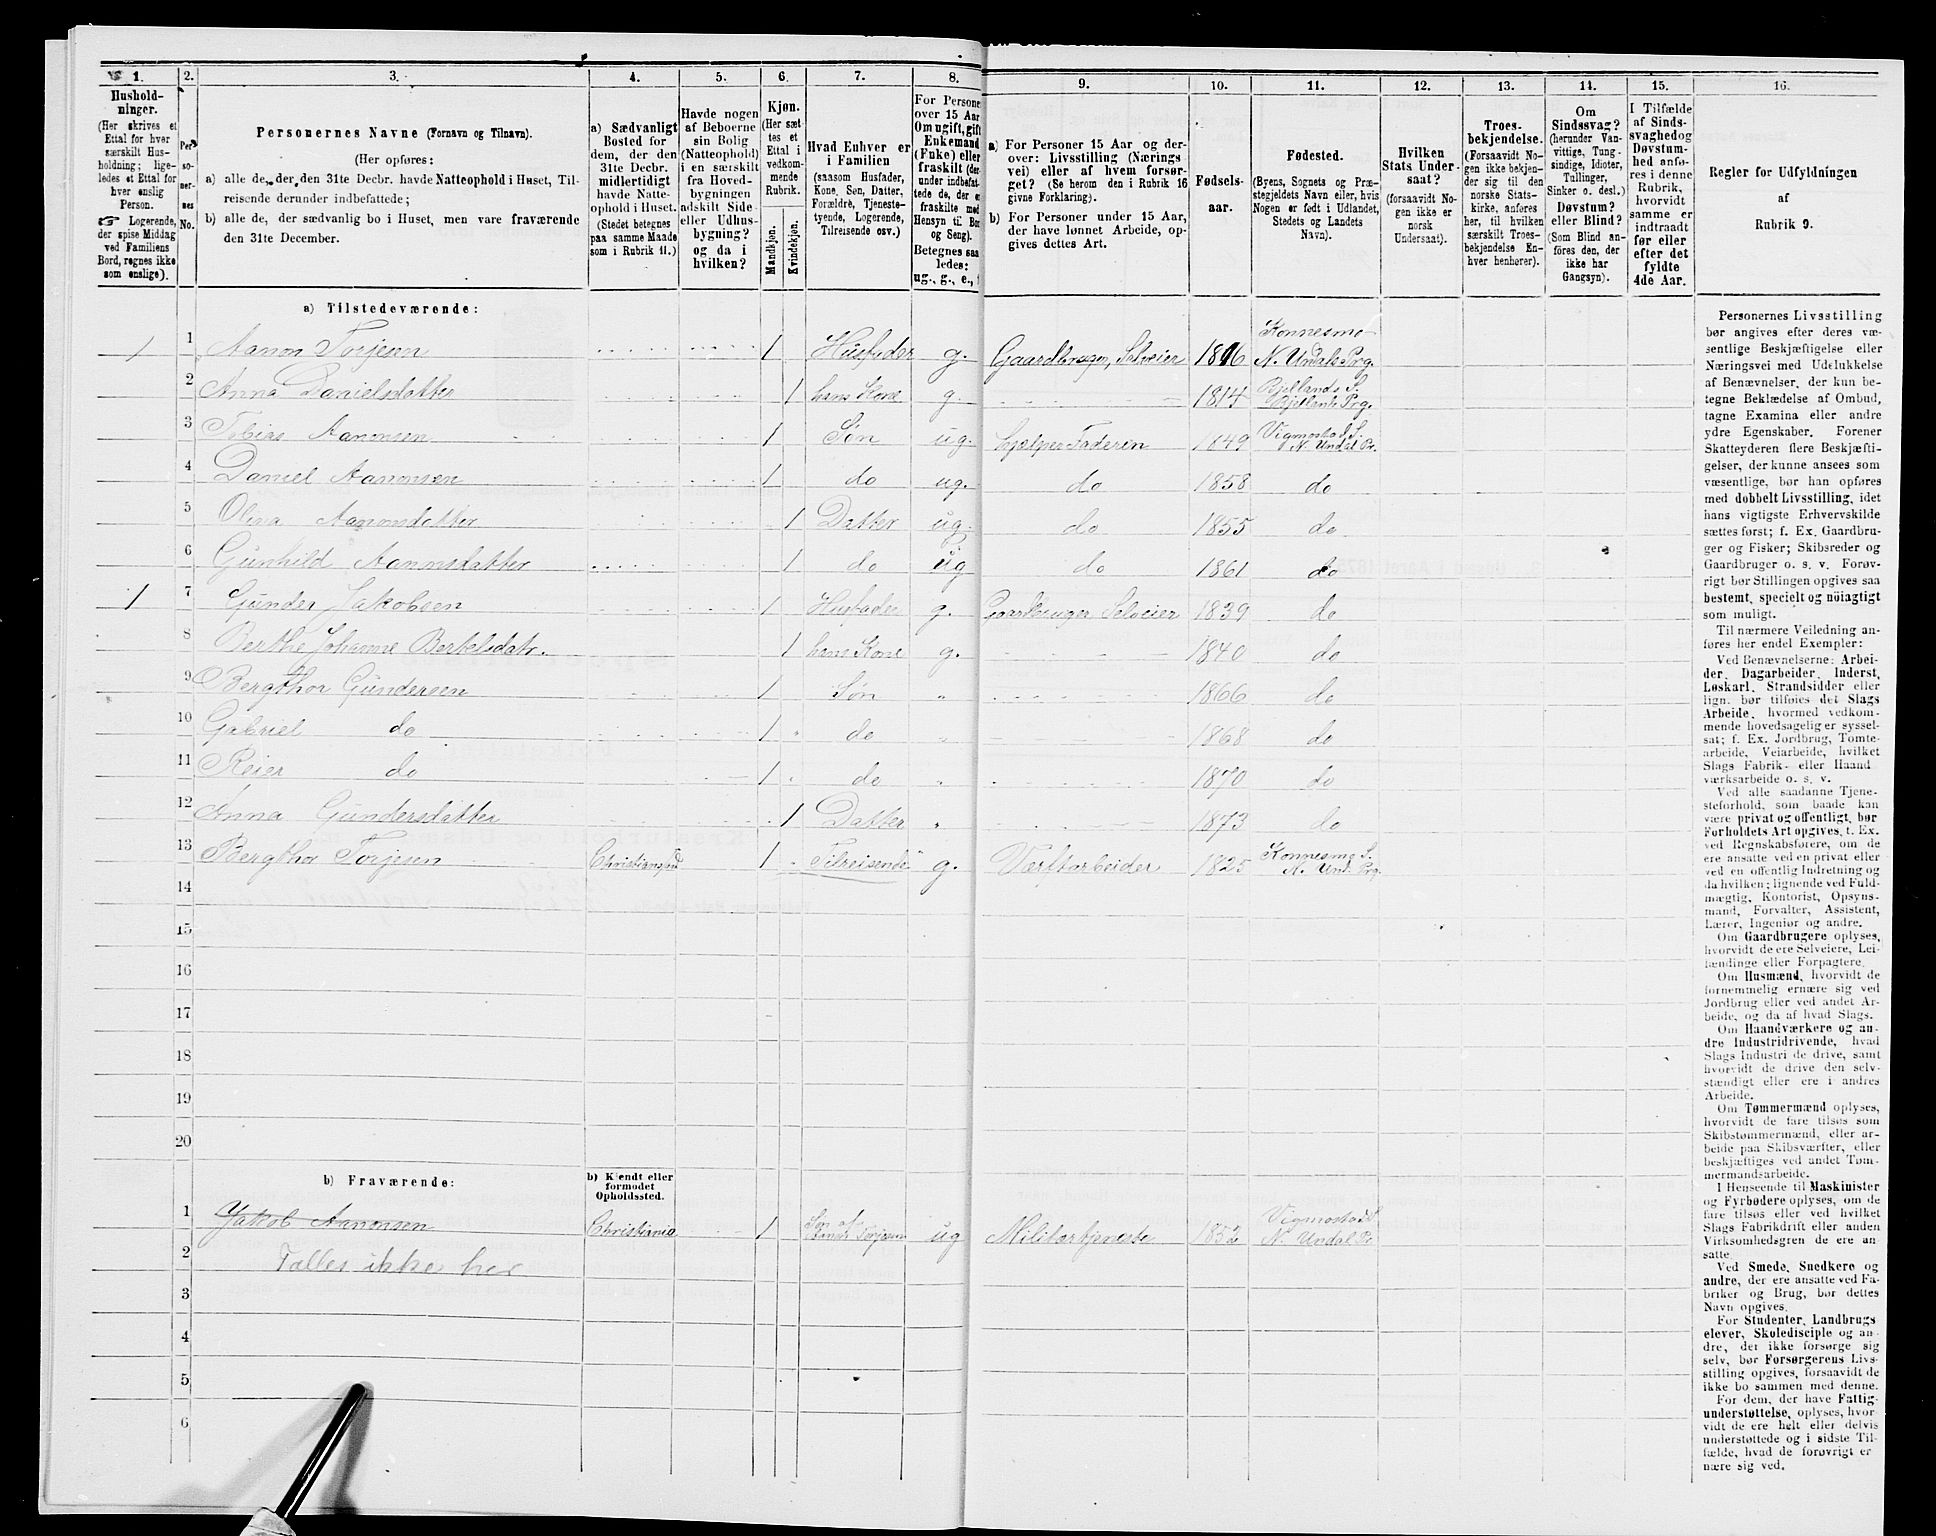 1.
Hushold-
ninger.
(Her skrives et
Ettal for hver
særskilt Hus-
holdning; lige-
ledes et Ettal for
hver enslig
Person.
☞ Logerende,
der spise Middag
ved Familiens
Bord, regnes ikke
som enslige).
2.
Per-
so-
ner-
nes
No.
3.
Personernes Navne (Fornavn og Tilnavn).
(Her opføres:
a) alle de, der den 31te Decbr. havde Natteophold i Huset, Til-
reisende derunder indbefattede;
b) alle de, der sædvanlig bo i Huset, men vare fraværende
den 31te December.
4.
a) Sædvanligt
Bosted for
dem, der den
31te Decbr.
midlertidigt
havde Natte-
ophold i Huset.
(Stedet betegnes
paa samme Maade
som i Rubrik 11.)
5.
Havde nogen
af Beboerne
sin Bolig
(Natteophold)
i en særskilt
fra Hoved-
bygningen
adskilt Side-
eller Udhus-
bygning?
og da i
hvilken?
6.
Kjøn.
(Her sæt-
tes et
Ettal i
vedkom-
mende
Rubrik.
Mandkjøn.
Kvindekjøn.
7.
Hvad Enhver er
i Familien
(saasom Husfader,
Kone, Søn, Datter,
Forældre, Tjeneste-
tyende, Logerende,
Tilreisende osv.)
8.
For Personer
over 15 Aar
Om ugift, gift,
Enkemand
(Enke) eller
fraskilt (der-
under indbefat-
tede de, der er
fraskilte med
Hensyn til Bord
og Seng).
Betegnes saa-
ledes:
ug., g., e., f.
9.
a) For Personer 15 Aar og der-
over: Livsstilling (Nærings-
vei) eller af hvem forsør-
get? (Se herom den i Rubrik 16
givne Forklaring).
b) For Personer under 15 Aar,
der have lønnet Arbeide, op-
gives dettes Art.
10.
Fødsels-
aar.
11.
Fødested.
(Byens, Sognets og Præ-
stegjeldets Navn eller, hvis
Nogen er født i Udlandet,
Stedets og Landets
Navn).
12.
Hvilken
Stats Under-
saat?
(forsaavidt No-
gen ikke er
norsk
Undersaat).
13.
Troes-
bekjendelse.
(Forsaavidt No-
gen ikke bekjen-
der sig til den
norske Stats-
kirke, anføres
her, til hvilken
særskilt Troes-
bekjendelse En-
hver henhører).
14.
Om
Sindssvag?
(herunder Van-
vittige, Tung-
sindige, Idioter,
Tullinger,
Sinker o. desl.)
Døvstum?
eller Blind?
(Som Blind an-
føres den, der
ikke har
Gangsyn).
15.
I Tilfælde
af Sinds-
svaghed og
Døvstum-
hed anfø-
res i denne
Rubrik,
hvorvidt
samme er
indtraadt
før eller
efter det
fyldte
4de Aar.
16.
Regler for Udfyldningen
af
Rubrik 9.
a) Tilstedeværende:
1 1 Aanon Torjesen 1 Husfader g. Gaardbruger, Selveier 1816 Konnesmo N. Undals Prg.
2 Anna Danielsdatter 1 hans Kone g. 1814 Bjellands S. Bjellands Prg.
3 Tobias Aanonsen 1 Søn ug. hjælper Faderen 1849 Vigmostad S. N. Undal Pr.
4 Daniel Aanonsen 1 do ug. do 1858 do
5 Olina Aanonsdatter 1 Datter ug. do 1855 do
6 Gunhild Aanonsdatter 1 do ug do 1861 do
1 7 Gunder Jakobsen 1 Husfader g. Gaardbruger Selveier 1839 do
8 Berthe Johanne Bertelsdatr. 1 hans Kone g. 1840 do
9 Bergthor Gundersen 1 Søn " 1866 do
10 Gabriel do 1 " do " 1868 do
11 Reier do 1 " do " 1870 do
12 Anna Gundersdatter 1 Datter " 1873 do
13 Bergthor Torjesen Christianssand 1 " Tilreisende g. Værftarbeider 1825 Konnesmo S. N. Und. Prg.
14
15
16
17
18
19
20
b) Fraværende:
b) Kjendt eller
formodet
Opholdssted.
1 Jakob Aanonsen Christiania 1 Søn af Aanon Torjesen ug Militærtjeneste 1852 Vigmostad S. N. Undal Pr
2 Tælles ikke her
3
4
5
6
Personernes Livsstilling
bør angives efter deres væ-
sentlige Beskjæftigelse eller
Næringsvei med Udelukkelse
af Benævnelser, der kun be-
tegne Beklædelse af Ombud,
tagne Examina eller andre
ydre Egenskaber. Forener
Skatteyderen flere Beskjæfti-
gelser, der kunne ansees som
væsentlige, bør han opføres
med dobbelt Livsstilling, idet
hans vigtigste Erhvervskilde
sættes først; f. Ex. Gaardbru-
ger og Fisker; Skibsreder og
Gaardbruger o. s. v. Forøv-
rigt bør Stillingen opgives saa
bestemt, specielt og nøiagtigt
som muligt.
Til nærmere Veiledning an-
føres her endel Exempler:
Ved Benævnelserne: Arbei-
der, Dagarbeider, Inderst,
Løskarl, Strandsidder eller
lign. bør tilføies det Slags
Arbeide, hvormed vedkom-
mende hovedsagelig er syssel-
sat; f. Ex. Jordbrug, Tomte-
arbeide, Veiarbeide, hvilket
Slags Fabrik- eller Haand-
værksarbeide o. s. v.
Ved alle saadanne Tjene-
steforhold, som baade kan
være privat og offentligt, bør
Forholdets Art opgives, t. Ex.
ved Regnskabsførere, om de
ere ansatte ved en privat eller
ved en offentlig Indretning og
da hvilken; lignende ved Fuld-
mægtig, Kontorist, Opsyns-
mand, Forvalter, Assistent,
Lærer, Ingeniør og andre.
Om Gaardbrugere oplyses,
hvorvidt de ere Selveiere, Lei-
lændinge eller Forpagtere.
Om Husmænd, hvorvidt de
fornemmelig ernære sig ved
Jordbrug eller ved andet Ar-
beide, og da af hvad Slags.
Om Haandværkere og an-
dre Industridrivende, hvad
Slags Industri de drive, samt
hvorvidt de drive den selv-
stændigt eller ere i andres
Arbeide.
Om Tømmermænd oplyses,
hvorvidt de fare tilsøs som
Skibstømmermænd, eller ar-
beide paa Skibsværfter, eller
beskjæftiges ved andet Tøm-
mermandsarbeide.
I Henseende til Maskinister
og Fyrbødere oplyses, om de
fare tilsøs eller ved hvilket
Slags Fabrikdrift eller anden
Virksomhedsgren de ere an-
satte.
Ved Smede, Snedkere og
andre, der ere ansatte ved Fa-
briker og Brug, bør dettes
Navn opgives.
For Studenter, Landbrugs-
elever, Skoledisciple og an-
dre, der ikke forsørge sig
selv, bør Forsørgerens Livs-
stilling opgives, forsaavidt de
ikke bo sammen med denne.
For dem, der have Fattig-
understøttelse, oplyses, hvor-
vidt de ere helt eller delvis
understøttede og i sidste Til-
fælde, hvad de forøvrigt er-
nære sig ved.